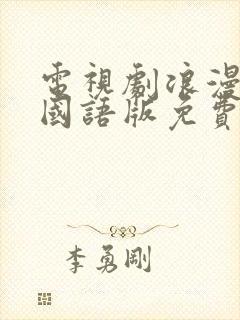 電視劇浪漫
國語版免費
李勇剛